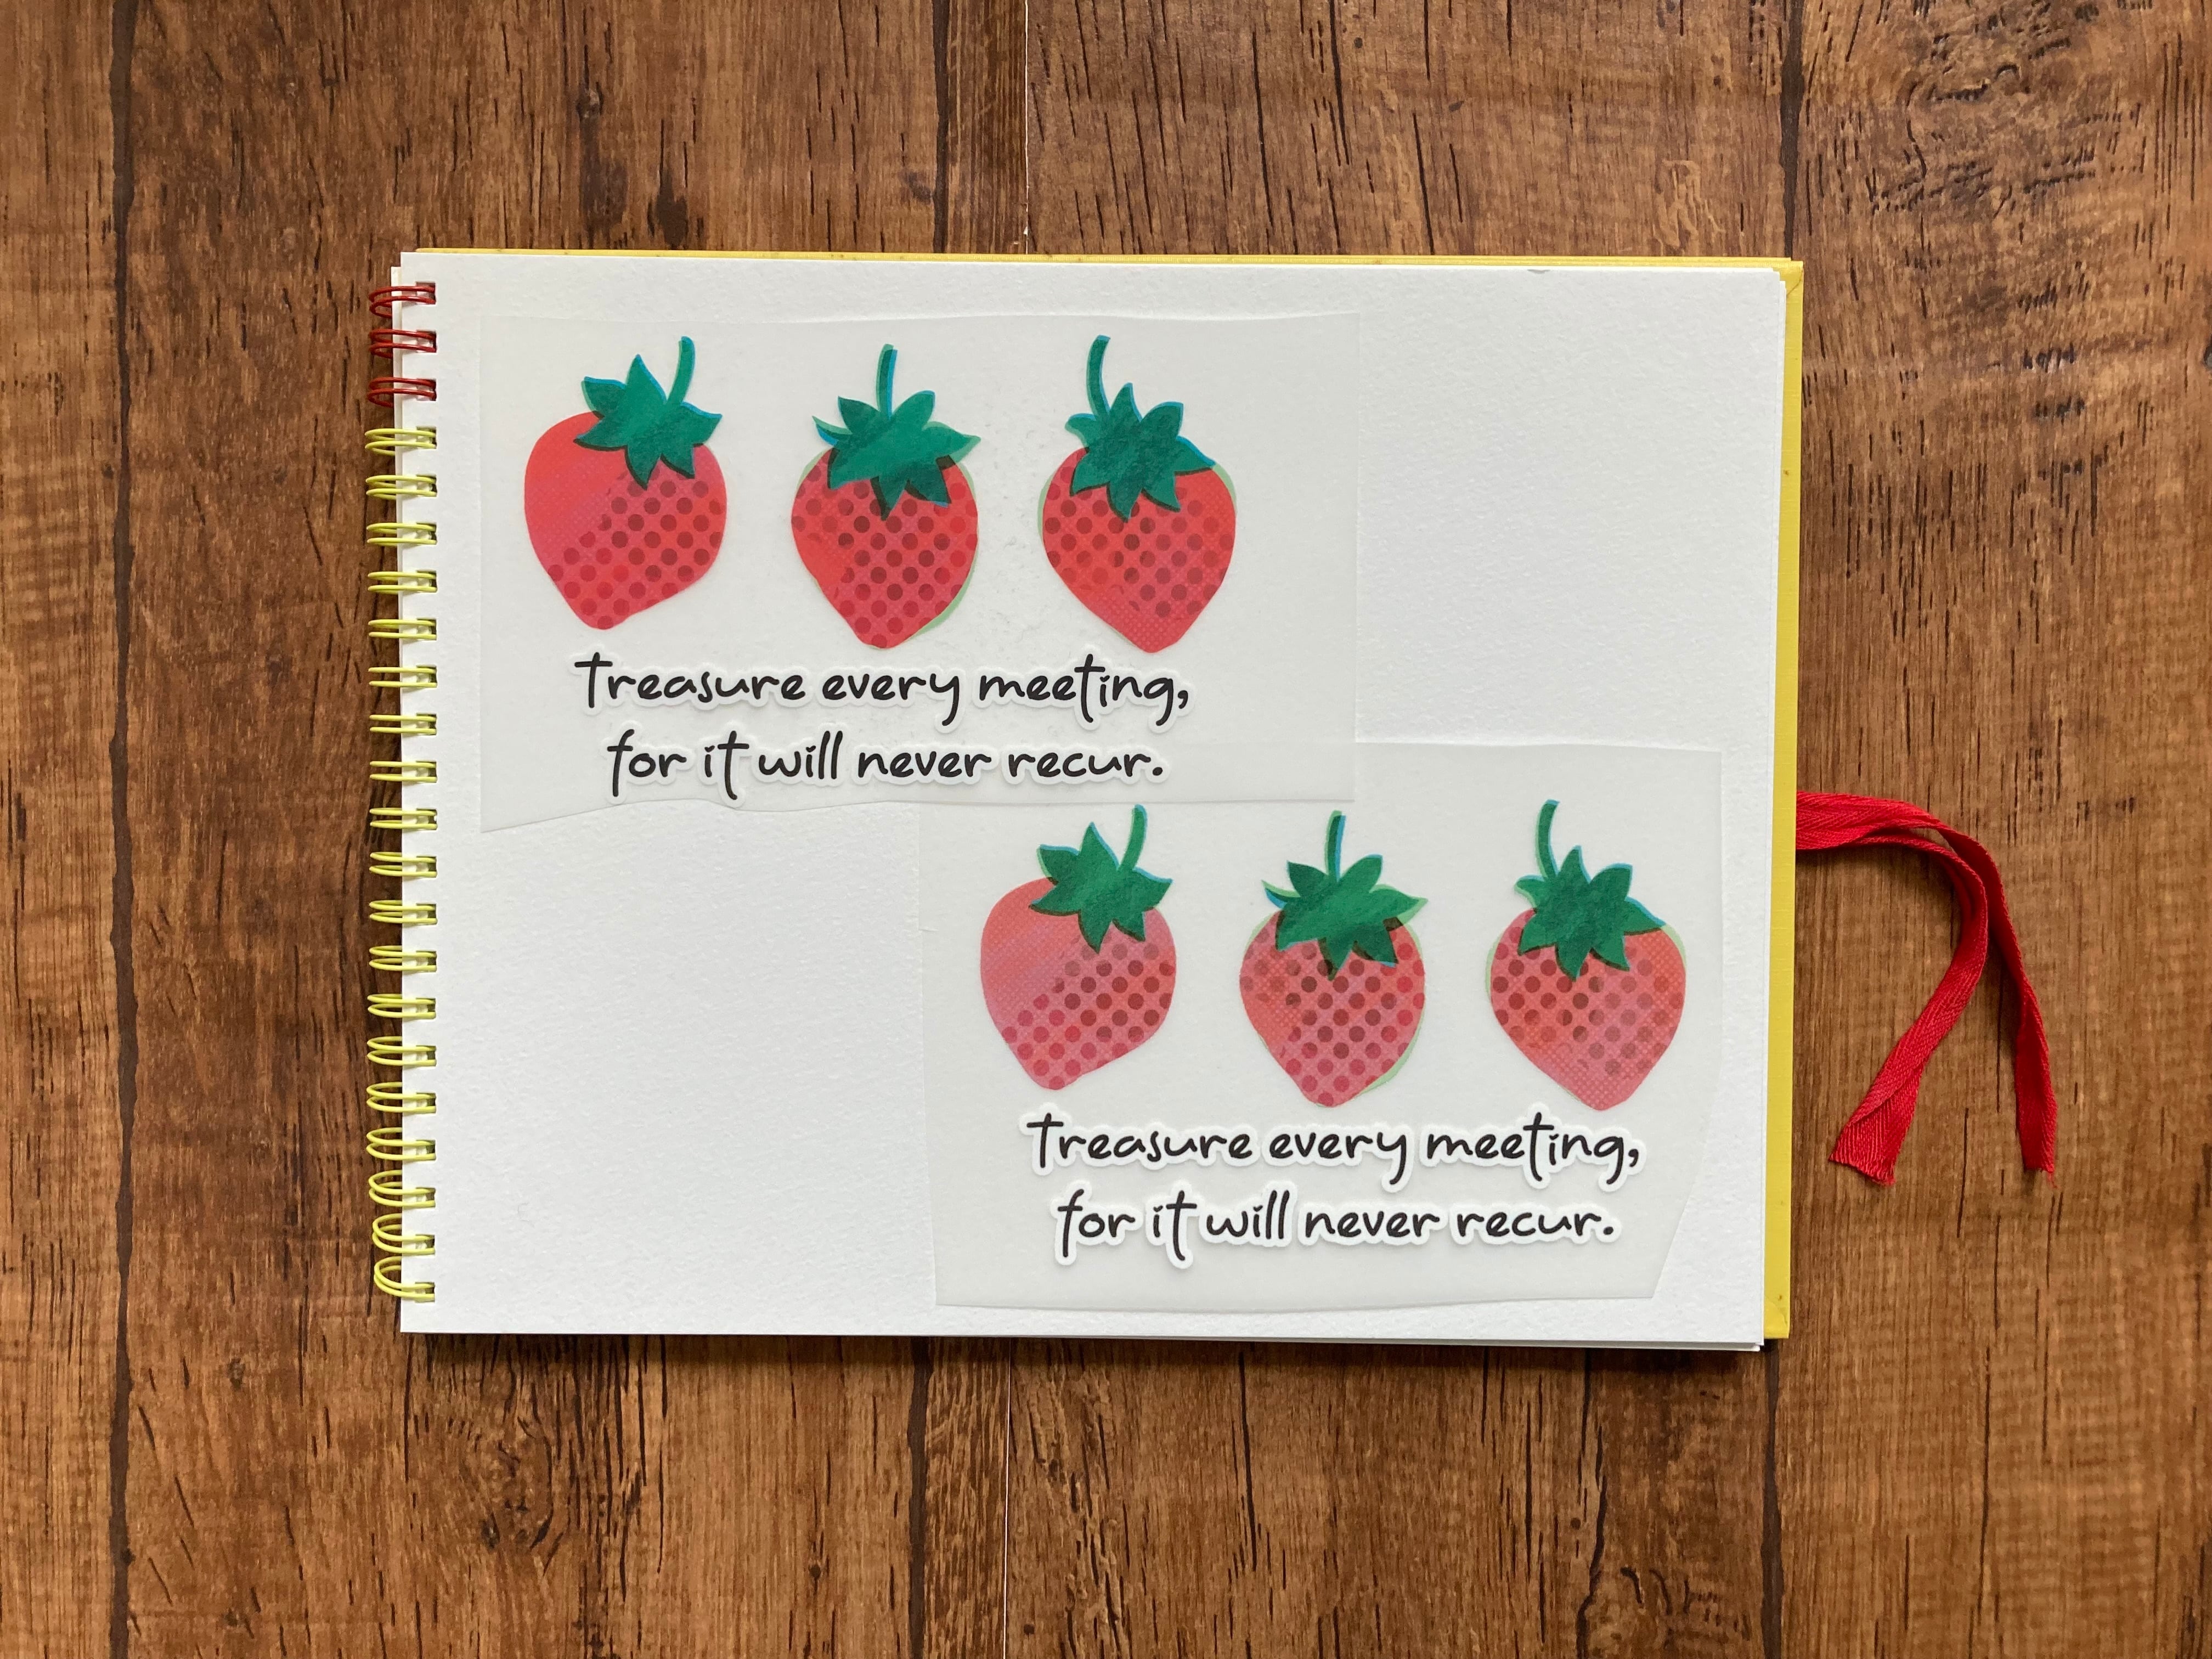 Treasure every meeting,
for it will never recur.
Treasure every meeting,
for it will never recur.